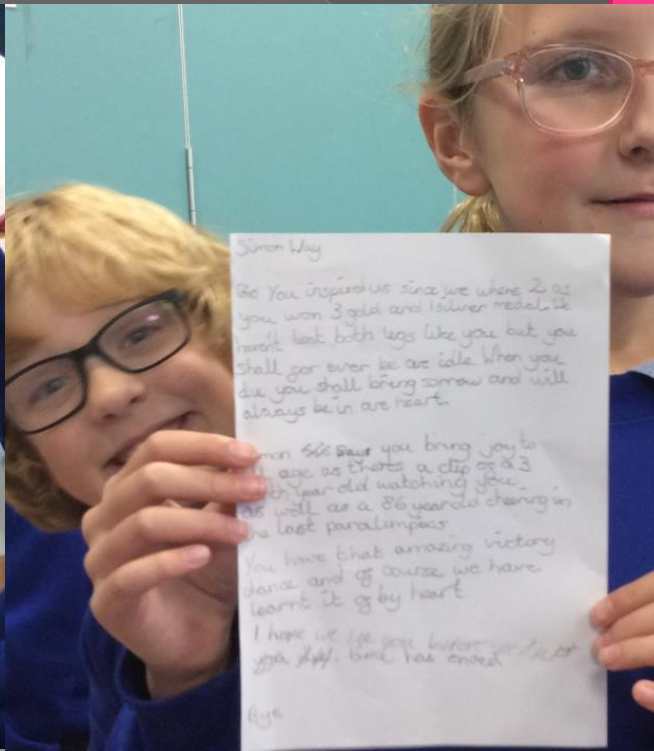 Simon Way
You inspired us since we where 2 as
you won 3 gold and 1 silver medal. We
havent lost both legs like you but you
shall for ever be are idle When you
die you shall bring sorrow and will
always be in are heart.
you bring joy to
age as theres a clip of a 3
year old watching you
as well as a 86 year old cheering in
the last paralimpocs
You have that amazing victory
dance and of course we have
learnt it of by heart
I hope we see you before or
time has ended
Bye